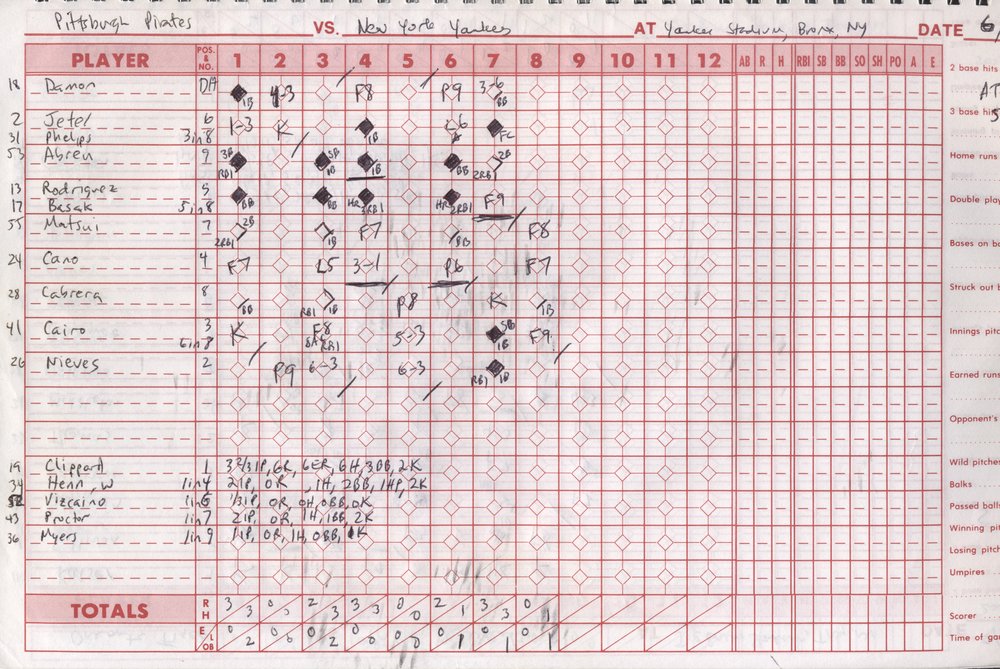 Pittsburgh Pirates VS. New York Yankees AT Yankee Stadium, Bronx, NY DATE 6/
PLAYER POS. & NO. 1 2 3 4 5 6 7 8 9 10 11 12 AB R H RBI SB BB SO SH PO A E
2 base hits
18 Damon DH 1B 4-3 F8 F9 3-6 BB
AT
2 Jeter 6 1-3 K 1B FC
3 base hits
31 Phelps 3in8
53 Abreu 9 3B RBI SB 1B 1B BB 2B 2RBI
Home runs
13 Rodriguez 5 BB BB HR 3RBI HR 2RBI F9
17 Basak 5in8
Double play
55 Matsui 7 2B 2RBI 1B F7 BB F8
Bases on ba
24 Cano 4 F7 L5 3-1 P6 F7
28 Cabrera 8 BB RBI 1B P8 K 1B
Struck out b
41 Cairo 3 K F8 SAC RBI 5-3 SB 1B F9
6in8
Innings pitc
26 Nieves 2 P9 6-3 6-3 RBI 1B
Earned runs
Opponent's
19 Clippard 1 3 2/3 IP, 6R, 6ER, 6H, 3BB, 2K
Wild pitches
34 Henn, W 1in4 2IP, 0R, 1H, 2BB, 1HP, 2K
Balks
52 Vizcaino 1in6 1/3 IP, 0R, 0H, 0BB, 0K
Passed balls
43 Proctor 1in7 2IP, 0R, 1H, 1BB, 2K
Winning pit
36 Myers 1in9 1IP, 0R, 1H, 0BB, 1K
Losing pitch
Umpires
TOTALS R H 3 3 0 0 2 3 3 3 0 0 2 1 3 3 0 1
Scorer
E LOB 0 2 0 0 0 2 0 0 0 0 0 1 0 1 0 1
Time of gam